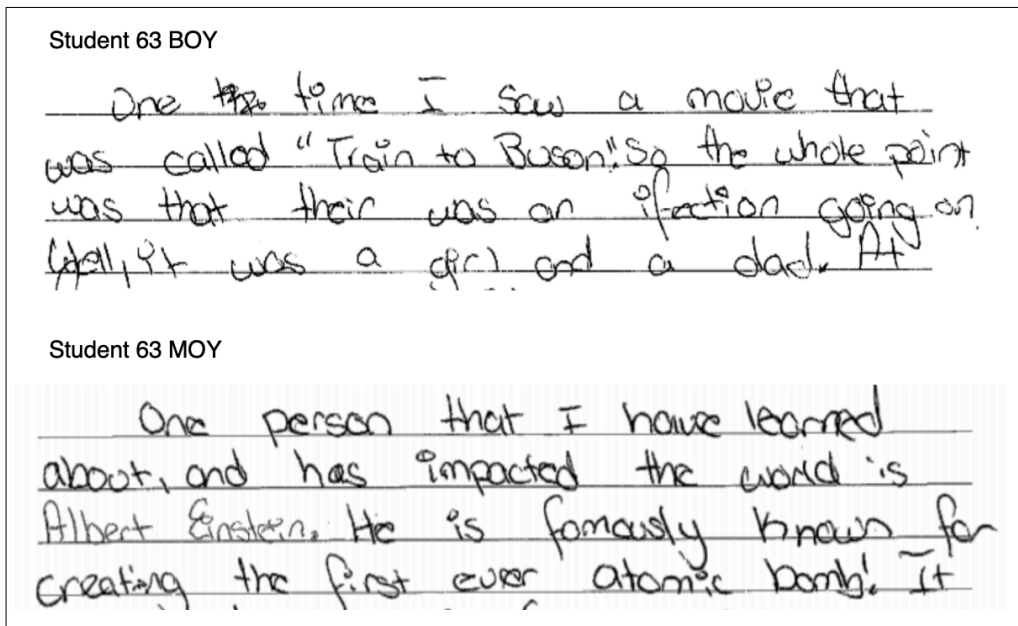 Student 63 BOY
One time I saw a movie that
was called "Train to Buson." So the whole point
was that their was an ifection going on
Well, it was a girl and a dad. At
Student 63 MOY
One person that I have learned
about, and has impacted the world is
Albert Einstein. He is famously known for
creating the first ever atomic bomb! It